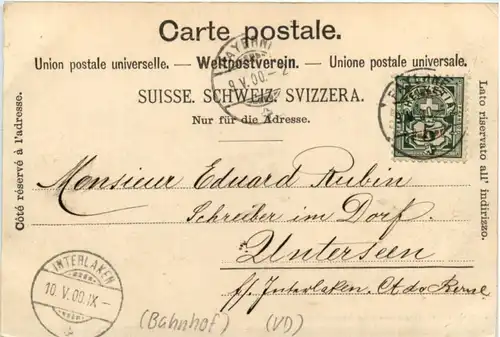 Carte postale.
Union postale universelle. — Weltpostverein. — Unione postale universale.
SUISSE. SCHWEIZ. SVIZZERA.
Nur für die Adresse.
Côté réservé à l'adresse.
Lato riservato all' indirizzo.
PAYERNE
9. V. 00. - 2
Monsieur Eduard Rubin
Schreiber im Dorf.
Unterseen
p/. Interlaken. Ct. de Berne
INTERLAKEN
10. V. 00. IX -
(Bahnhof) (VD)